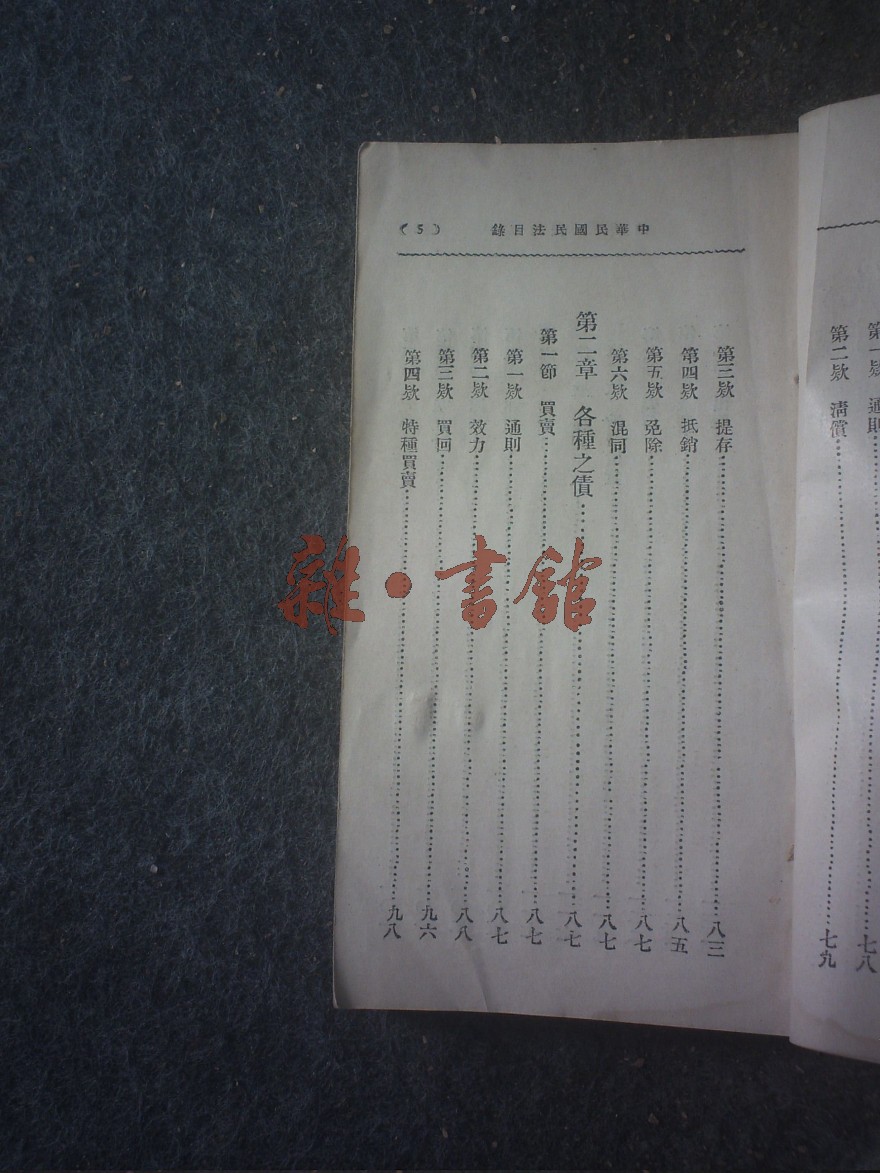 第一欵 通則……七八
第二欵 清償……七九
中華民國民法目錄
(5)
第三欵 提存……八三
第四欵 抵銷……八五
第五欵 免除……八七
第六欵 混同……八七
第二章 各種之債……八七
第一節 買賣……八七
第一欵 通則……八七
第二欵 效力……八八
第三欵 買回……九六
第四欵 特種買賣……九八
雜·書館